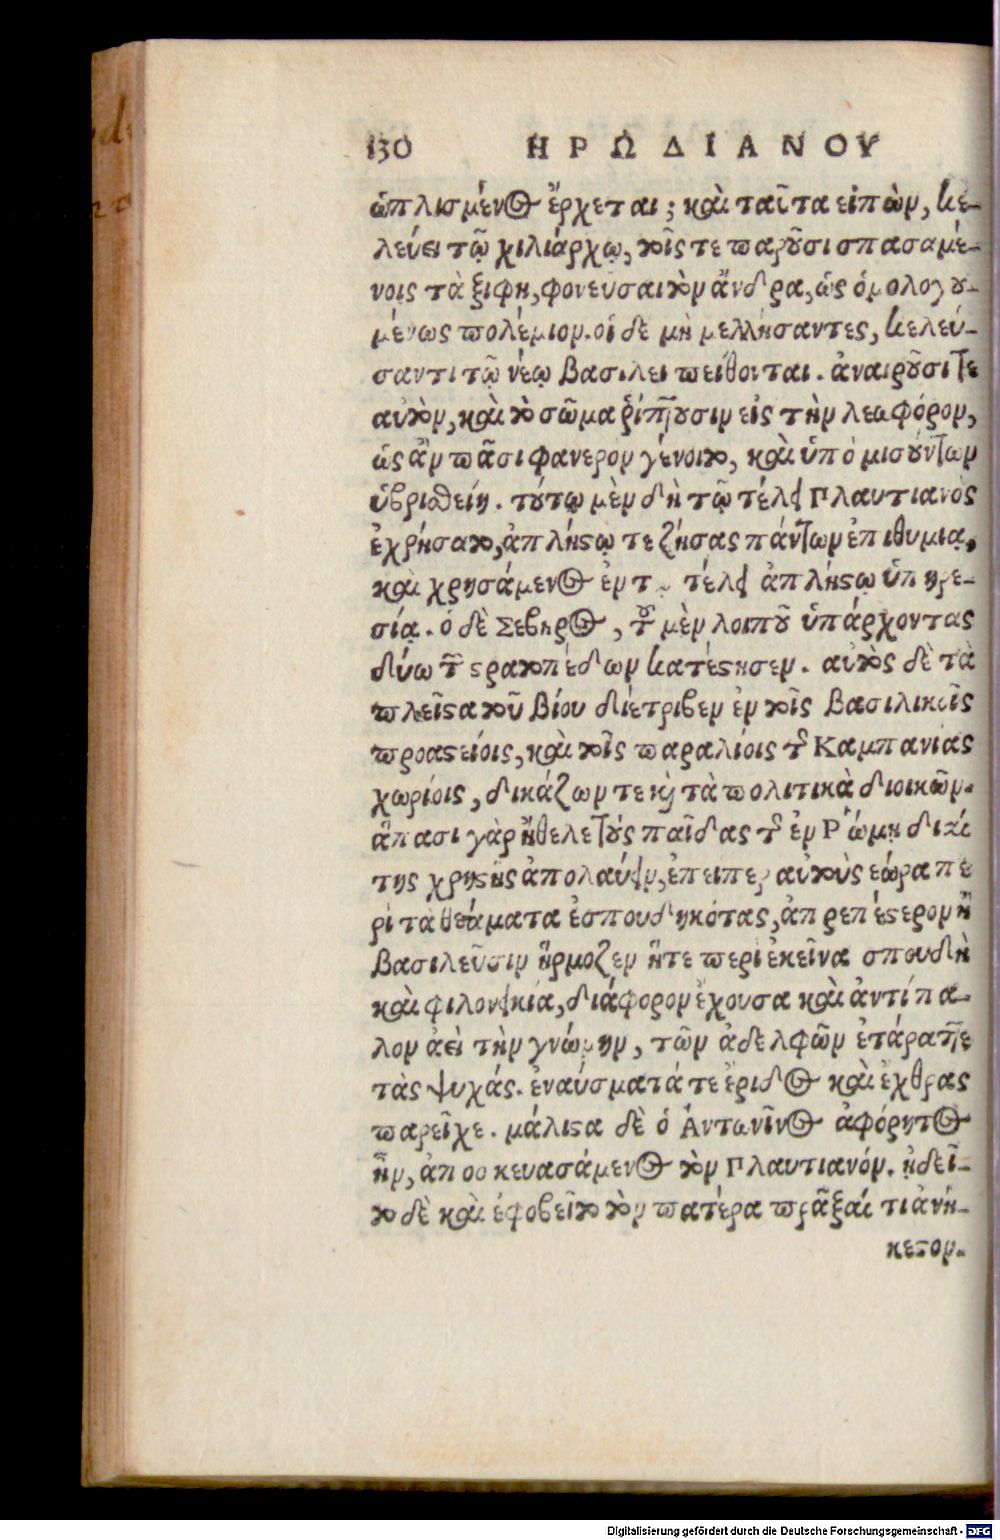 130 ΗΡΩΔΙΑΝΟΥ
ὡπλισμένος ἔρχεται; καὶ ταῦτα εἰπὼν, κε-
λεύει τῷ χιλιάρχῳ, τοῖς τε παροῦσι σπασαμέ-
νοις τὰ ξίφη, φονεῦσαι τὸν ἄνδρα, ὡς ὁμολογου-
μένως πολέμιον. οἱ δὲ μὴ μελλήσαντες, κελεύ-
σαντι τῷ νέῳ βασιλεῖ πείθονται. ἀναιροῦσί τε
αὐτὸν, καὶ τὸ σῶμα ῥίπτουσιν εἰς τὴν λεωφόρον,
ὡς ἂν πᾶσι φανερὸν γένοιτο, καὶ ὑπὸ μισούντων
ὑβρισθείη. τούτῳ μὲν δὴ τῷ τέλει Πλαυτιανὸς
ἐχρήσατο, ἀπλήστῳ τε ζήσας πάντων ἐπιθυμίᾳ,
καὶ χρησάμενος ἐν τ τέλει ἀπλήστῳ ὑπηρε-
σίᾳ. ὁ δὲ Σεβῆρος, τοῦ μὲν λοιποῦ ὑπάρχοντας
δύω τῶν στρατοπέδων κατέστησεν. αὐτὸς δὲ τὰ
πλεῖστα τοῦ βίου διέτριβεν ἐν τοῖς βασιλικοῖς
προαστείοις, καὶ τοῖς παραλίοις τῆς Καμπανίας
χωρίοις, δικάζων τε καὶ τὰ πολιτικὰ διοικῶν.
ἅπασι γὰρ ἤθελε τοὺς παῖδας τῆς ἐν Ῥώμῃ διαί
της χρηστῆς ἀπολαύειν, ἐπείπερ αὐτοὺς ἑώρα πε
ρὶ τὰ θεάματα ἐσπουδηκότας, ἀπρεπέστερον ἢ
βασιλεῦσιν ἥρμοζεν ἥτε περὶ ἐκεῖνα σπουδὴ
καὶ φιλονεικία, διάφορον ἔχουσα καὶ ἀντίπα-
λον ἀεὶ τὴν γνώμην, τῶν ἀδελφῶν ἐτάραττε
τὰς ψυχάς. ἐναύσματά τε ἔριδος καὶ ἔχθρας
παρεῖχε. μάλιστα δὲ ὁ Ἀντωνῖνος ἀφόρητος
ἦν, ἀποσκευασάμενος τὸν Πλαυτιανόν. ᾐδεῖ-
το δὲ καὶ ἐφοβεῖτο τὸν πατέρα πρᾶξαί τι ἀνή-
κεστον.
Digitalisierung gefördert durch die Deutsche Forschungsgemeinschaft - DFG